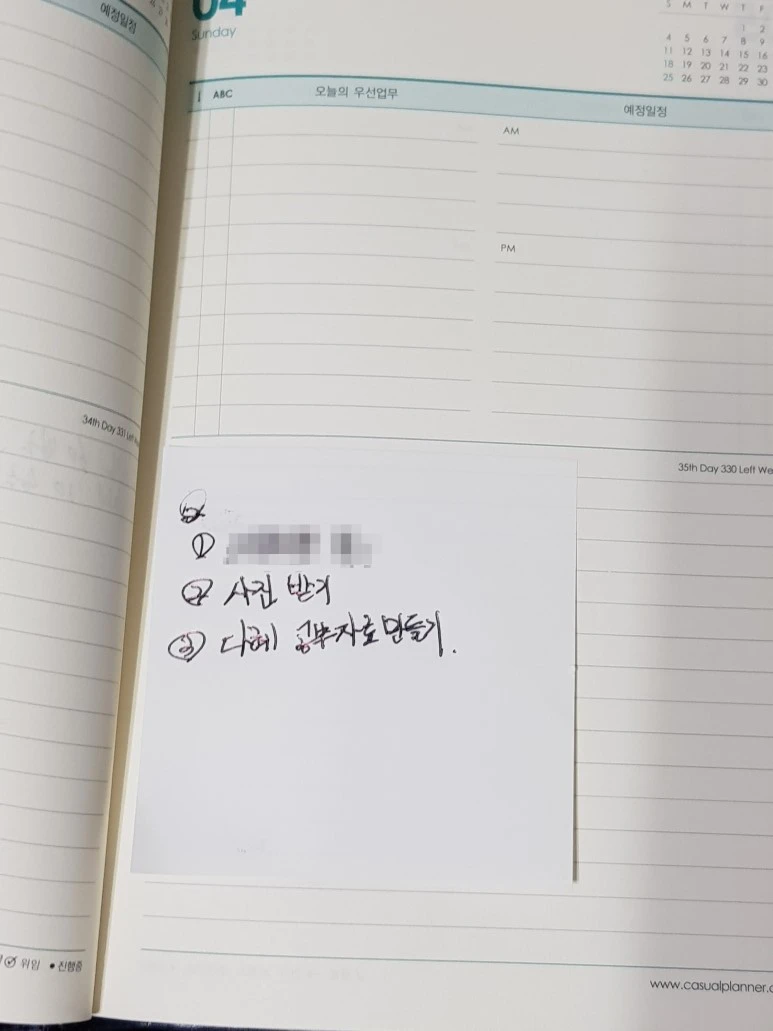 예정일정
04
Sunday
S M T W T F
1 2
4 5 6 7 8 9
11 12 13 14 15 16
18 19 20 21 22 23
25 26 27 28 29 30
↓ ABC 오늘의 우선업무
예정일정
AM
PM
34th Day 331 Left
35th Day 330 Left We
①
② 사진 받기
③ 다혜 공부자료 만들기.
위임 • 진행중
www.casualplanner.c